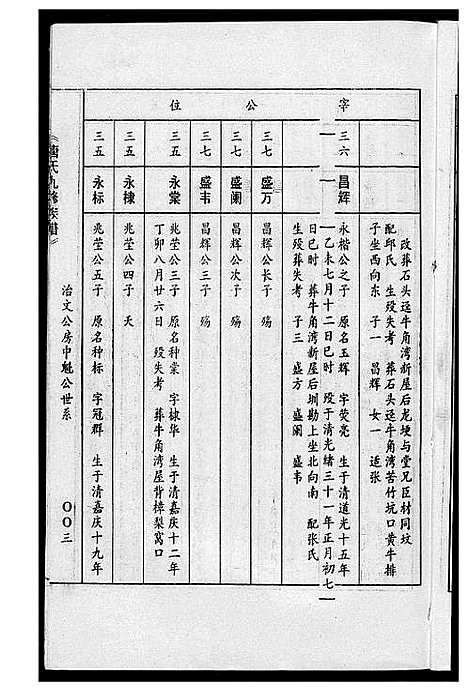 宰公位
改葬石头迳牛角湾新屋后龙埂与堂兄臣材同坟
配邱氏 生殁失考 葬石头迳牛角湾苦竹坑口黄牛排
子坐西向东 子一 昌辉 女一 适张
三六 昌辉 永楷公之子 原名玉辉 字荧亮 生于清道光十五年
乙未七月十二日巳时 殁于清光绪三十一年正月初七
日巳时 葬牛角湾新屋后圳勘上坐北向南 配张氏
生殁葬失考 子三 盛万 盛阑 盛韦
三七 盛万 昌辉公长子 殇
三七 盛阑 昌辉公次子 殇
三七 盛韦 昌辉公三子 殇
三五 永棠 兆莹公三子 原名种棠 字棣华 生于清嘉庆十二年
丁卯八月廿六日 殁失考 葬牛角湾屋背樟梨窝口
三五 永棣 兆莹公四子 夭
三五 永标 兆莹公五子 原名种标 字冠群 生于清嘉庆十九年
氏九修族谱》 治文公房中魁公世系 〇〇三